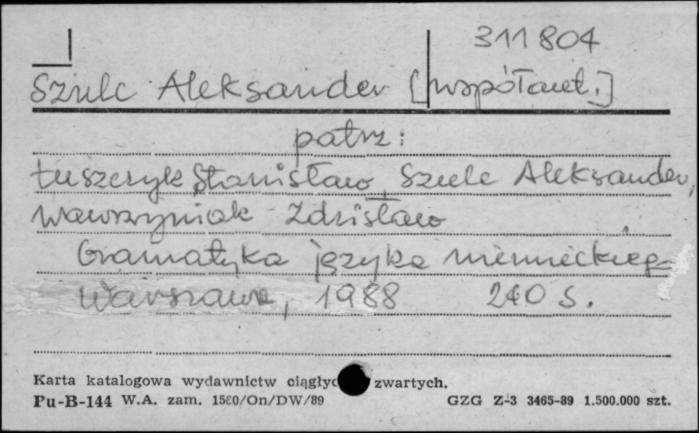 311804
Szulc Aleksander [współaut.]
patrz:
Łuszczyk Stanisław, Szulc Aleksander,
Wawrzyniak Zdzisław
Gramatyka języka niemieckiego
Warszawa, 1988 240 s.
Karta katalogowa wydawnictw ciągłyc zwartych.
Pu-B-144 W.A. zam. 1560/On/DW/89 GZG Z-3 3465-89 1.500.000 szt.